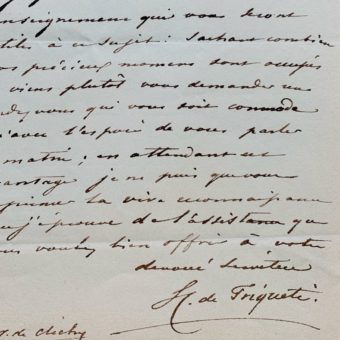 nseignemens qui vous seront
tiles à ce sujet: Sachant combien
os précieux momens sont occupés
viens plutôt vous demander un
ndez vous qui vous soit commode
'avec l'espoir de vous parler
matin; en attendant cet
avantage je ne puis que vous
primer la vive reconnaissance
que j'éprouve de l'assistance que
ous voulez bien offrir à votre
dévoué serviteur
H. de Triqueti.
de Clichy